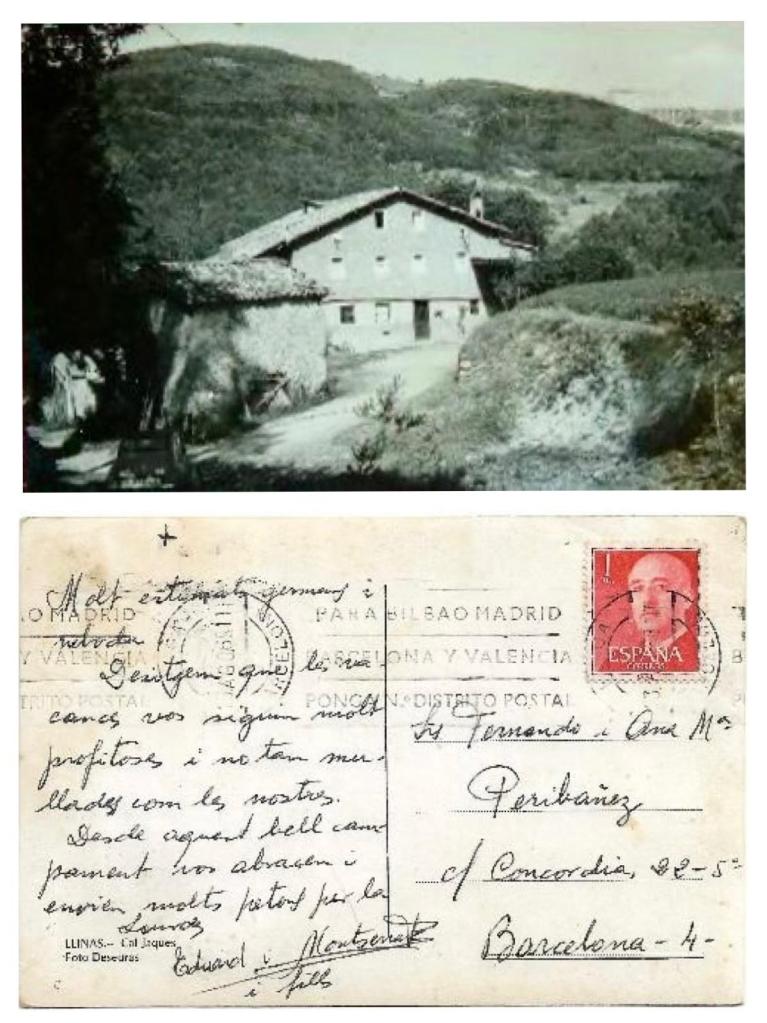 +
Molt estimats germans i
neboda
Desitgem que les va
cances vos siguin molt
profitoses i no tan mu-
llades com les nostres.
Desde aquest bell cam-
pament vos abracem i
enviem molts petons per la
Lourdes
Eduard i Montserrat
i fills
LLINAS.- Cal Jaques
Foto Deseuras
O MADRID
Y VALENCIA
TRITO POSTAL
PARA BILBAO MADRID
BARCELONA Y VALENCIA
PONGA N.º DISTRITO POSTAL
1
ESPAÑA
CORREOS
Srs Fernando i Ana Mª
Peribañez
c/ Concordia, 22-5º
Barcelona - 4 -